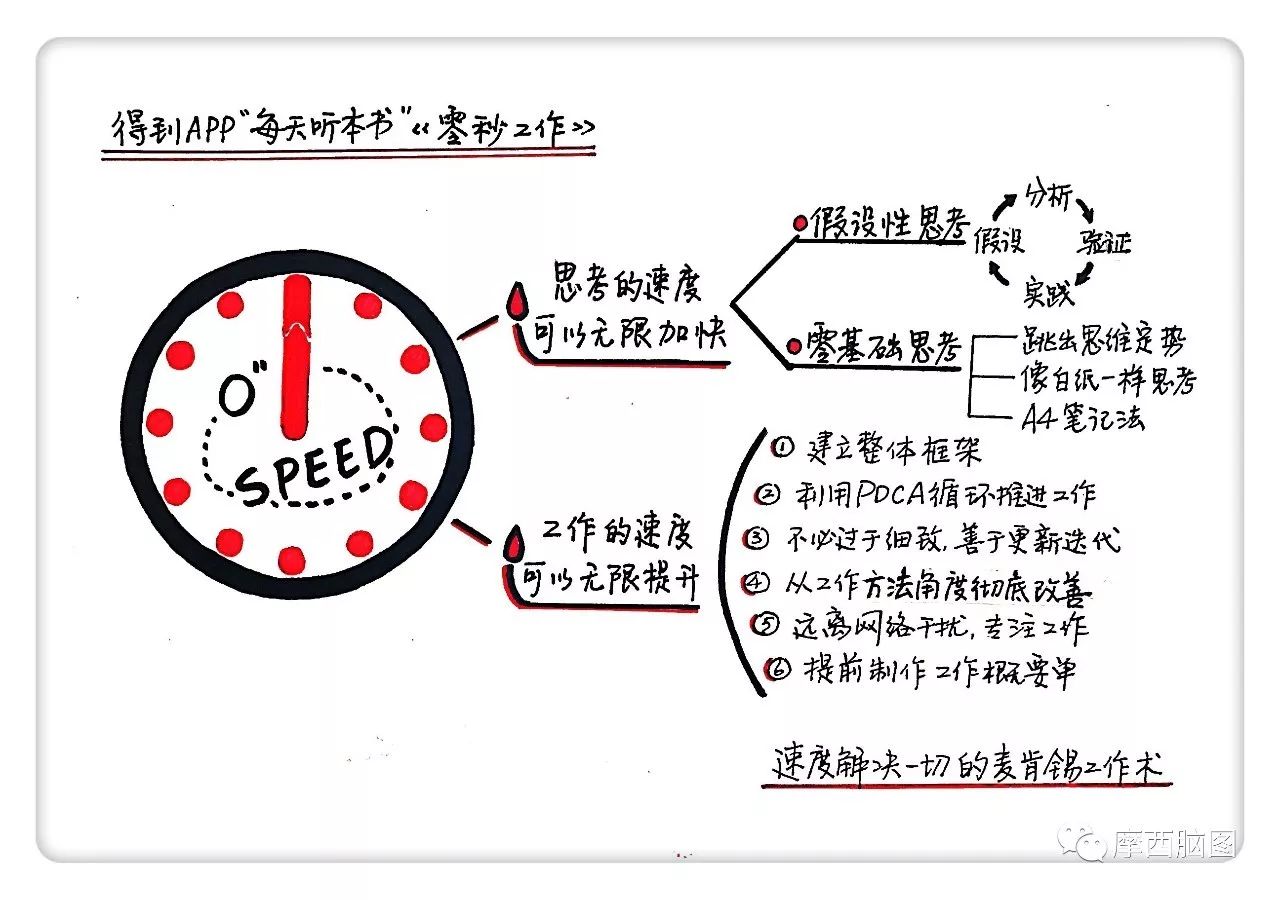 得到APP“每天听本书”《零秒工作》
0"
SPEED
思考的速度
可以无限加快
假设性思考
分析
假设
验证
实践
零基础思考
跳出思维定势
像白纸一样思考
A4笔记法
工作的速度
可以无限提升
① 建立整体框架
② 利用PDCA循环推进工作
③ 不必过于细致,善于更新迭代
④ 从工作方法角度彻底改善
⑤ 远离网络干扰,专注工作
⑥ 提前制作工作概要单
速度解决一切的麦肯锡工作术
摩西脑图